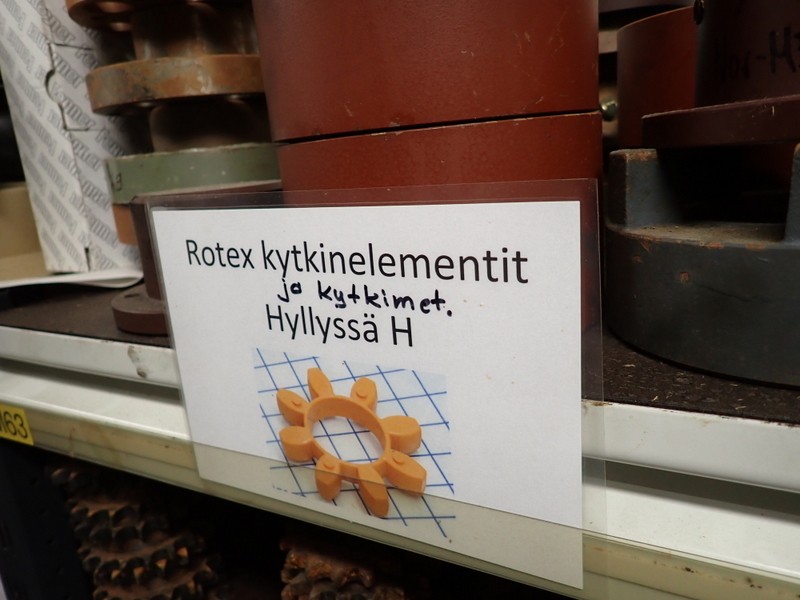 Rotex kytkinelementit
ja kytkimet.
Hyllyssä H